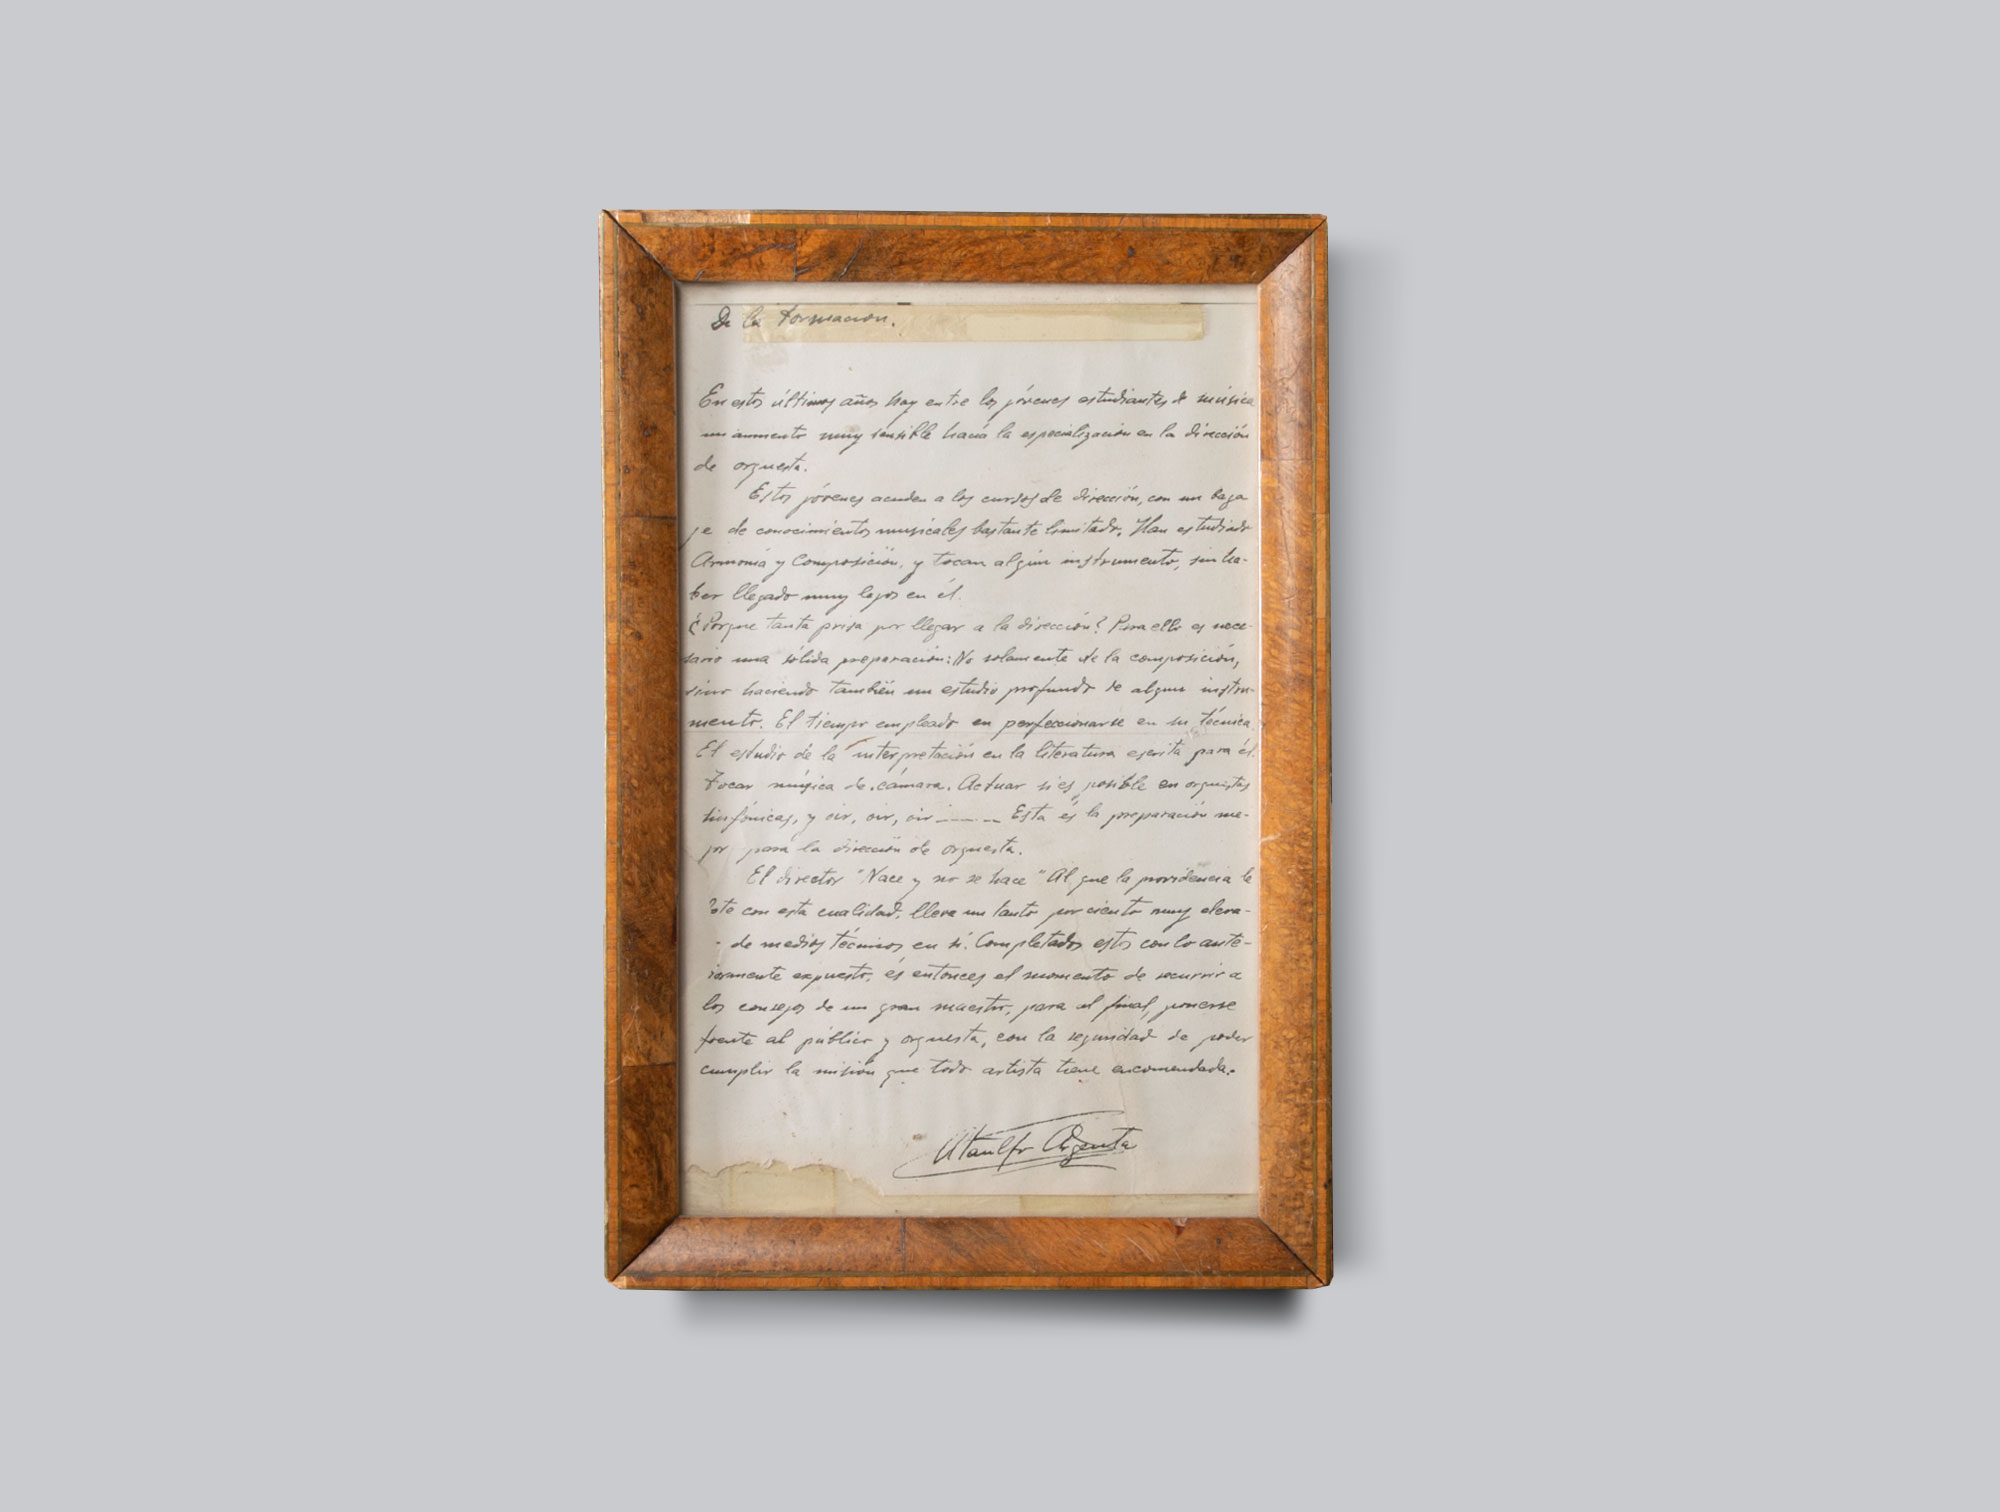 De la Formación.
En estos últimos años hay entre los jóvenes estudiantes de música
un aumento muy sensible hacia la especialización en la dirección
de orquesta.
Estos jóvenes acuden a los cursos de dirección, con un baga
je de conocimientos musicales bastante limitado. Han estudiado
Armonía y Composición, y tocan algún instrumento, sin ha-
ber llegado muy lejos en él.
¿Porque tanta prisa por llegar a la dirección? Para ello es nece-
sario una sólida preparación: No solamente de la composición,
sino haciendo también un estudio profundo de algun instru-
mento. El tiempo empleado en perfeccionarse en su técnica.
El estudio de la interpretación en la literatura escrita para él.
Tocar música de cámara. Actuar si es posible en orquestas
sinfónicas, y oir, oir, oir ------ Esta és la preparación me-
jor para la dirección de orquesta.
El director "Nace y no se hace" Al que la providencia le
dote con esta cualidad, lleva un tanto por ciento muy eleva-
- de medios técnicos en sí. Completados estos con lo ante-
riormente expuesto, és entonces el momento de recurrir a
los consejos de un gran maestro, para al final, ponerse
frente al público y orquesta, con la seguridad de poder
cumplir la misión que todo artista tiene encomendada.
Ataulfo Argenta